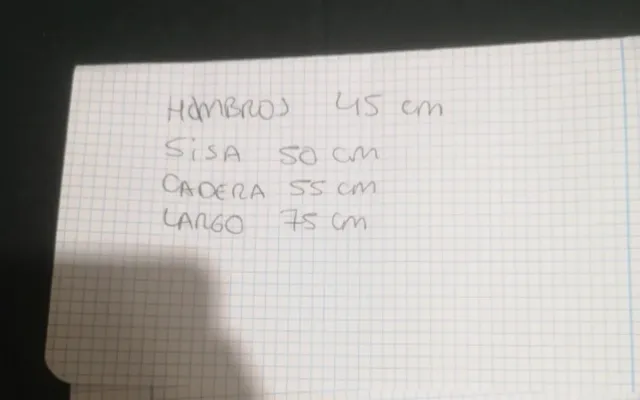 HOMBROS 45 cm
SiSA 50 cm
CADERA 55 cm
LARGO 75 cm